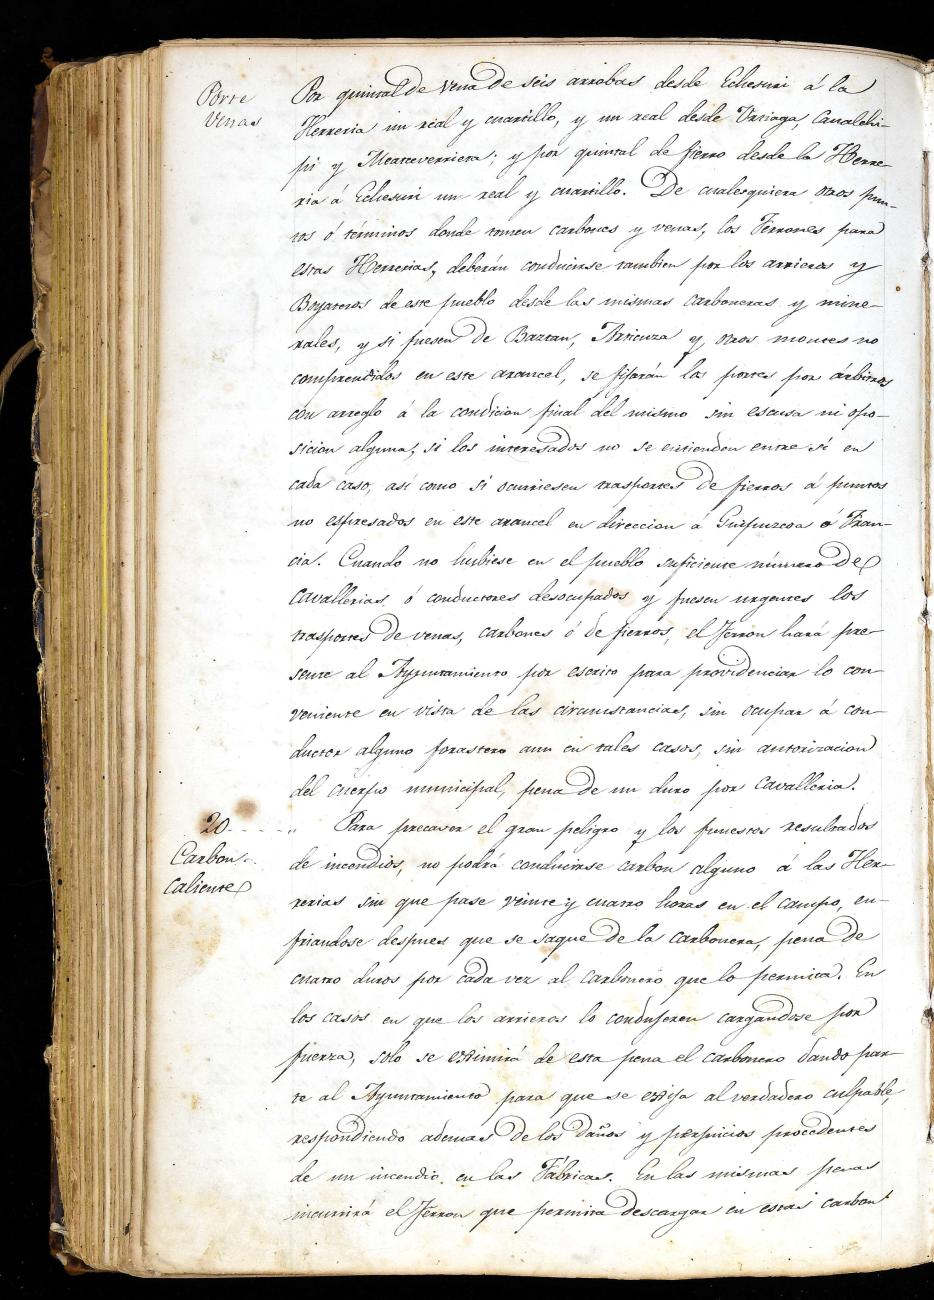 Porte
Venas
Por quintal de vena de seis arrobas desde Echesuri á la
Herreria un real y cuartillo, y un real desde Urtiaga, Canalechi-
pi y Meatzeverrieta; y por quintal de fierro desde la Herre-
ria á Echesuri un real y cuartillo. De cualesquiera otros pun-
tos ó términos donde tomen carbones y venas, los Ferrones para
estas Herrerias, deberán conducirse tambien por los arrieros y
Boyateros de este pueblo desde las mismas carboneras y mine-
rales, y si fuesen de Baztan, Articuza y otros montes no
comprendidos en este arancel, se fijarán los portes por árbitros
con arreglo á la condicion final del mismo sin escusa ni opo-
sicion alguna, si los interesados no se entienden entre sí en
cada caso, así como si ocurriesen trasportes de fierros á puntos
no espresados en este arancel en direccion á Guipuzcoa ó Fran-
cia. Cuando no hubiese en el pueblo suficiente número de
cavallerias ó conductores desocupados y fuesen urgentes los
trasportes de venas, carbones ó de fierros, el Ferron hará pre-
sente al Ayuntamiento por escrito para providenciar lo con-
veniente en vista de las circunstancias, sin ocupar á con-
ductor alguno forastero aun en tales casos, sin autorizacion
del cuerpo municipal, pena de un duro por cavalleria.
20 Para precaver el gran peligro y los funestos resultados
Carbon
Caliente
de incendios, no podrá conducirse carbon alguno á las Her-
rerias sin que pase veinte y cuatro horas en el campo, en-
friandose despues que se saque de la carbonera, pena de
cuatro duros por cada vez al carbonero que lo permita. En
los casos en que los arrieros lo condujeren cargandose por
fuerza, solo se eximirá de esta pena el carbonero dando par-
te al Ayuntamiento para que se exija al verdadero culpable,
respondiendo ademas de los daños y perjuicios procedentes
de un incendio en las Fábricas. En las mismas penas
incurrirá el Ferron que permita descargar en estas carbon